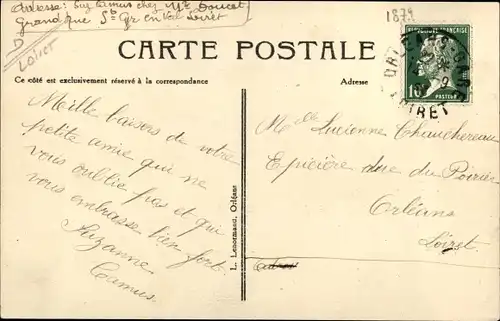 Adresse: Suz Camus chez Mr Doucet
Grand'rue St Cyr en Val Loiret
D
Loiret
1879
CARTE POSTALE
Ce côté est exclusivement réservé à la correspondance
Adresse
RÉPUBLIQUE FRANÇAISE
10c
PASTEUR
ORLEANS-GARE
LOIRET
Mille baisers de votre
petite amie qui ne
vous oublie pas et qui
vous embrasse bien fort
Suzanne
Camus
L. Lenormand, Orléans
Melle Lucienne Chauchereau
Epicière rue du Poirier
Orléans
Loiret